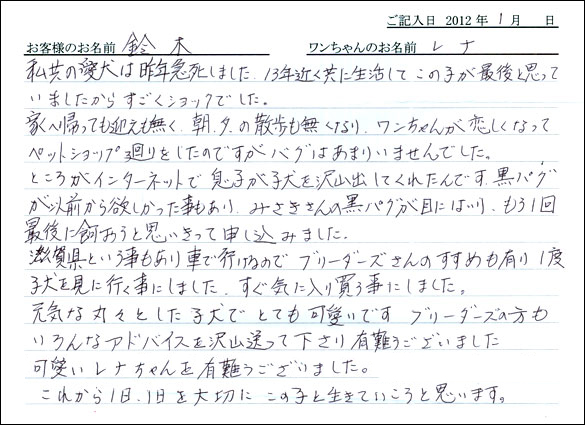 ご記入日 2012年 1月 日
お客様のお名前 鈴木 ワンちゃんのお名前 レナ
私共の愛犬は昨年急死しました、13年近く共に生活して この子が最後と思って
いましたから すごくショックでした。
家へ帰っても迎えも無く、朝、夕の散歩も無くなり、ワンちゃんが恋しくなって
ペットショップ回りをしたのですが パグはあまりいませんでした。
ところがインターネットで 息子が子犬を沢山出してくれたんです 黒パグ
が以前から欲しかった事もあり、みさきさんの黒パグが目にはいり、もう1回
最後に飼おうと思いきって申し込みました。
滋賀県という事もあり車で行けるので ブリーダーズさんのすすめも有り 1度
子犬を見に行く事にしました、すぐ気に入り買う事にしました。
元気な丸々とした子犬で とても可愛いです ブリーダーズの方も
いろんなアドバイスを沢山送って下さり有難うございました
可愛い レナちゃんを有難うございました。
これから1日、1日を大切に この子と生きていこうと思います。